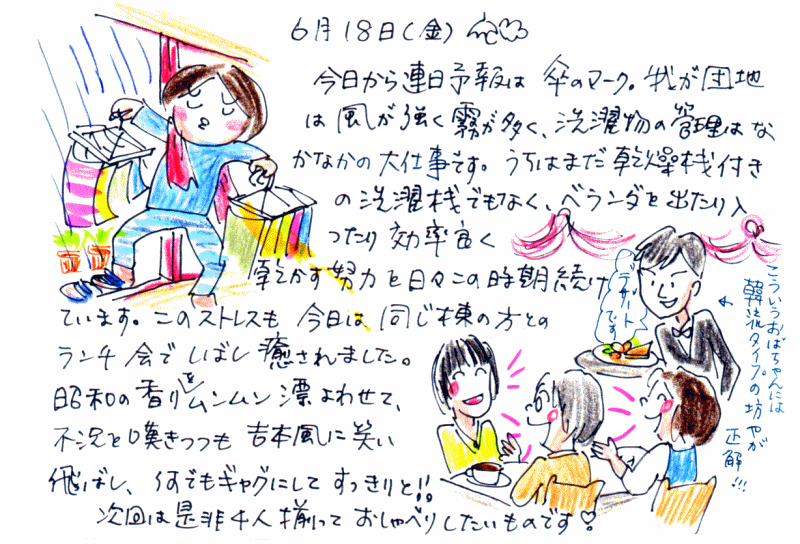 6月18日(金)
今日から連日予報は 傘のマーク。我が団地
は風が強く霧が多く、洗濯物の管理はな
かなかの大仕事です。うちはまだ乾燥機付き
の洗濯機でもなく、ベランダを出たり入
ったり効率良く
乾かす努力を日々この時期続け
ています。このストレスも 今日は 同じ棟の方との
ランチ会でしばし癒されました。
昭和の香りをムンムン漂よわせて、
不況を嘆きつつも 吉本風に笑い
飛ばし、何でもギャグにして すっきりと!!
次回は是非4人揃って おしゃべりしたいものです♡
デザート
です
こういうおばちゃんには
韓流タイプの坊やが
正解!!!